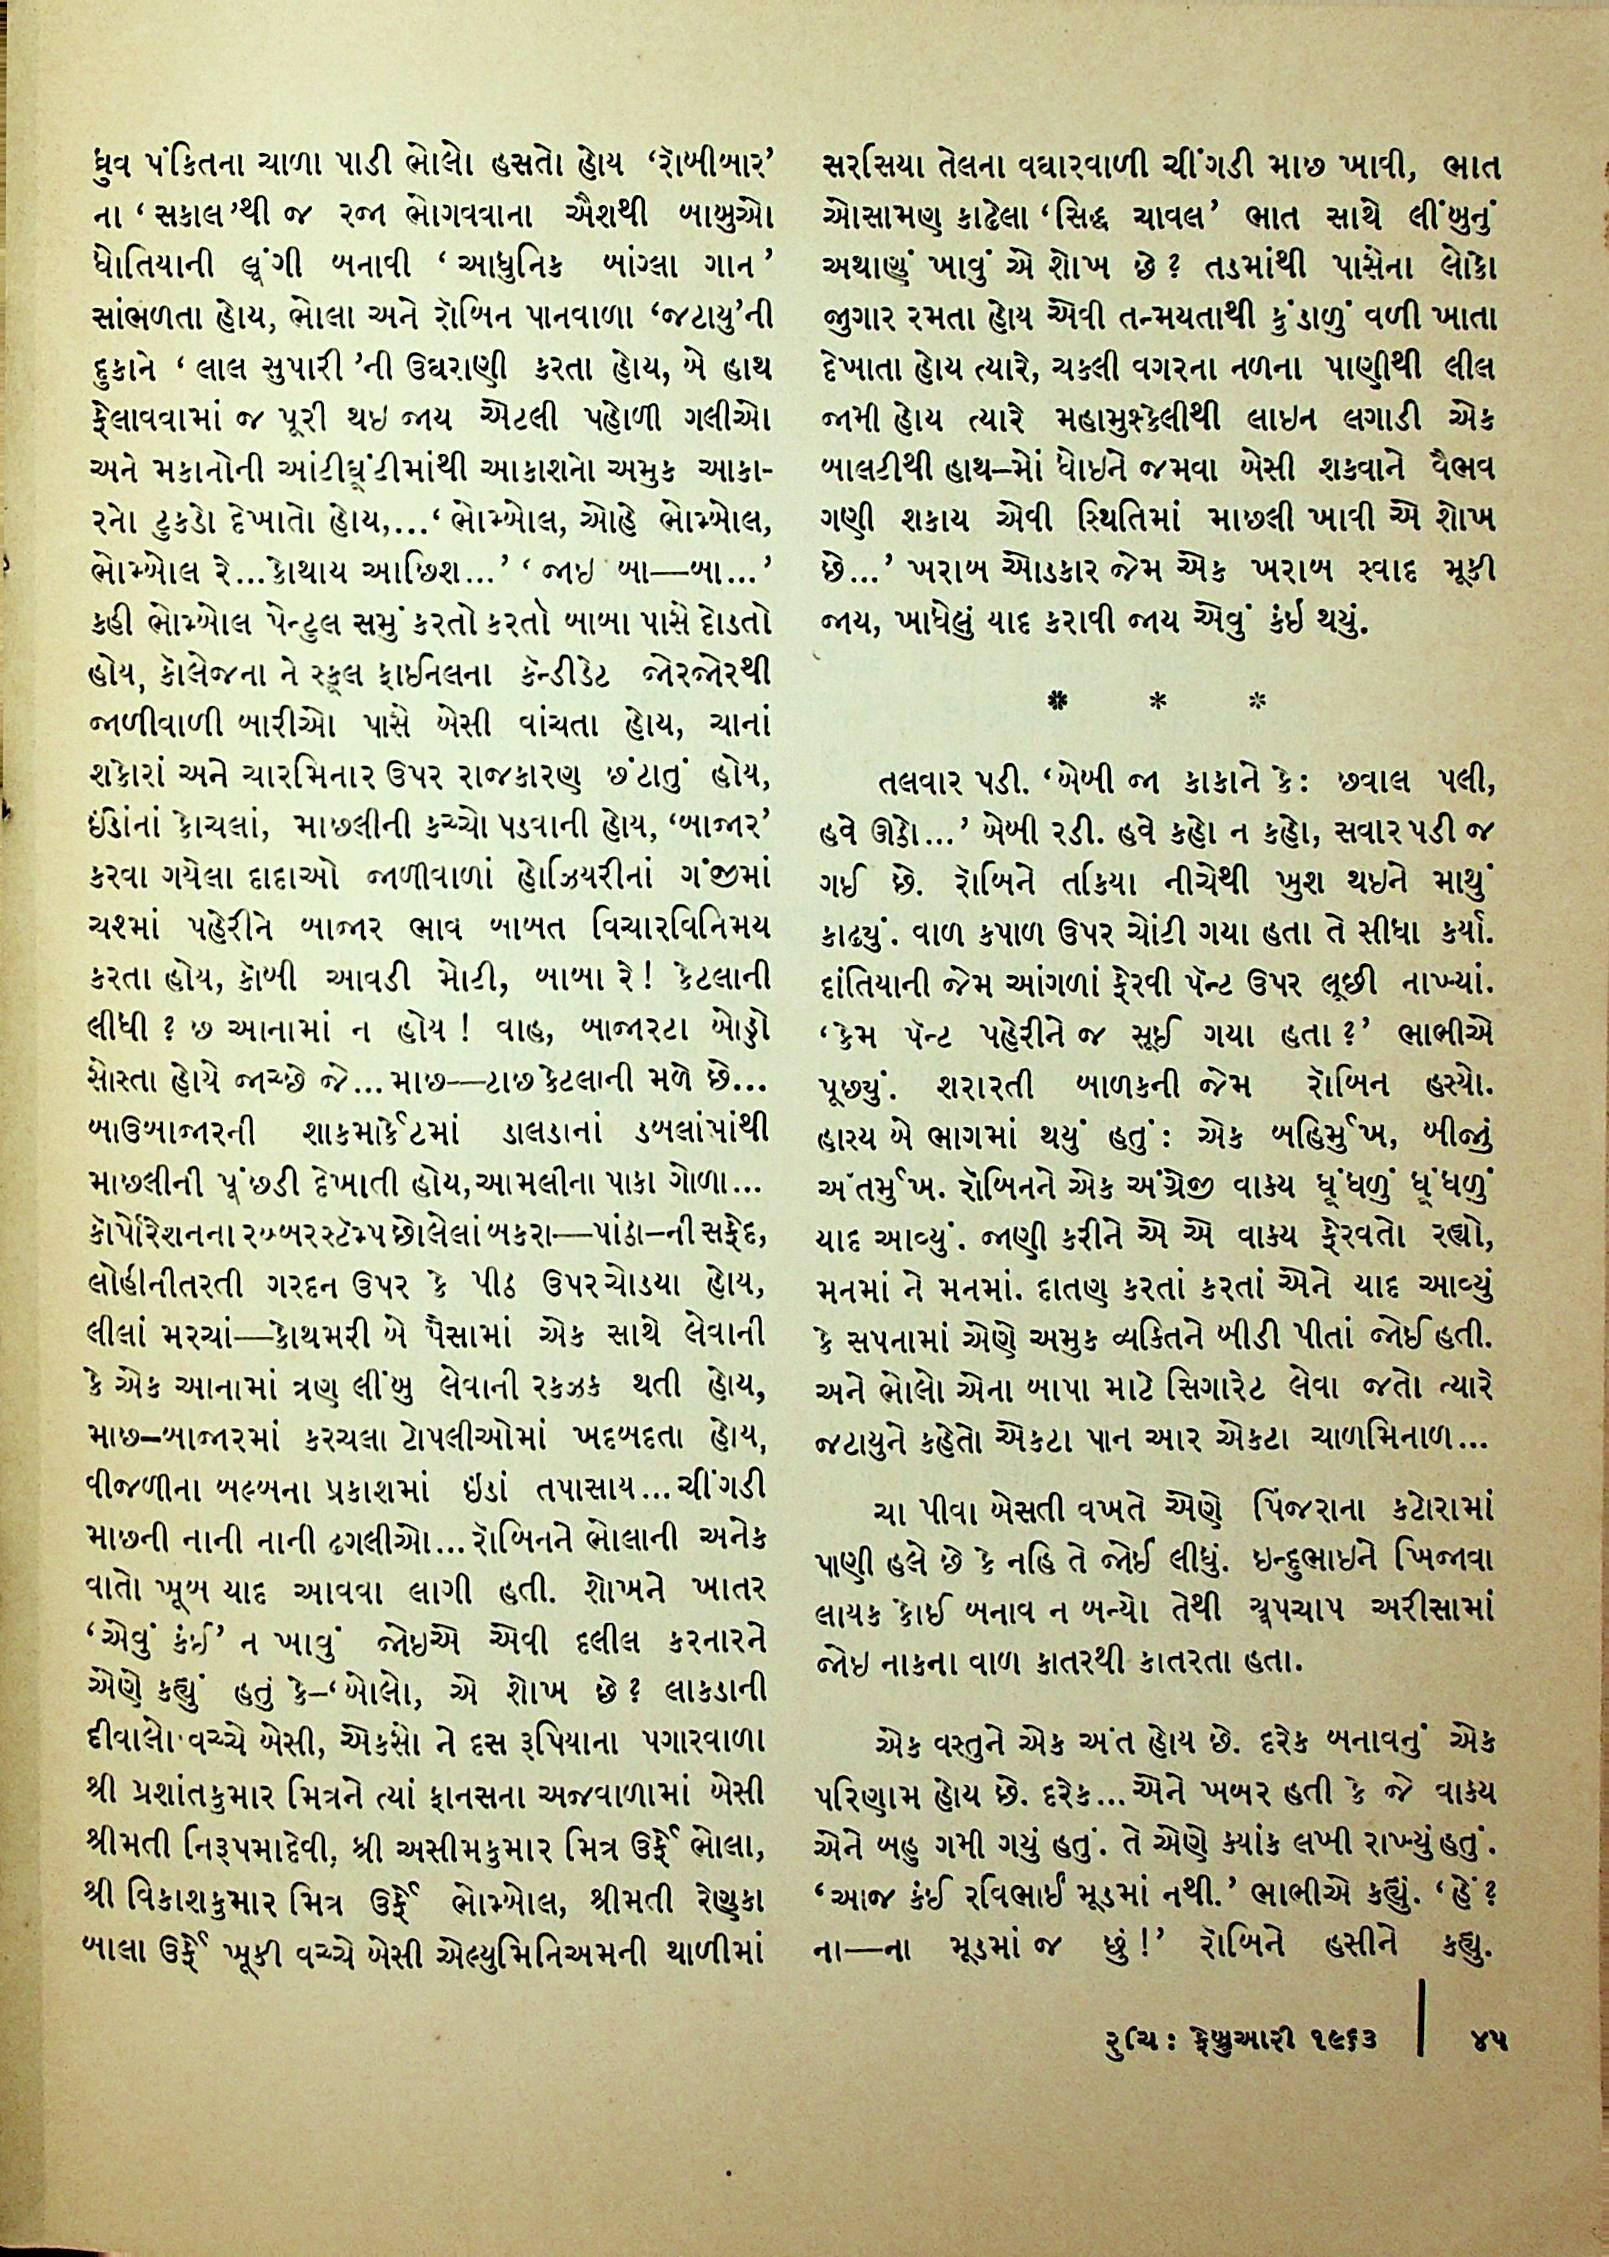 ધ્રુવ પંકિતના ચાળા પાડી ભોલો હસતો હોય ‘રૉબીબાર’
ના ‘ સકાલ’થી જ રજા ભોગવવાના ઐશથી બાબુઓ
ધોતિયાની લૂંગી બનાવી ‘ આધુનિક બાંગ્લા ગાન ’
સાંભળતા હોય, ભોલા અને રૉબિન પાનવાળા ‘જટાયુ’ની
દુકાને ‘ લાલ સુપારી ’ની ઉઘરાણી કરતા હોય, બે હાથ
ફેલાવવામાં જ પૂરી થઇ જાય એટલી પહોળી ગલીઓ
અને મકાનોની આંટીઘૂંટીમાંથી આકાશનો અમુક આકા-
રનો ટુકડો દેખાતો હોય,...‘ ભોમ્બોલ, ઓહે ભોમ્બોલ,
ભોમ્બોલ રે...કોથાય આછિશ...’ ‘ જાઇ બા—બા...’
કહી ભોમ્બોલ પેન્ટુલ સમું કરતો કરતો બાબા પાસે દોડતો
હોય, કૉલેજના ને સ્કૂલ ફાઈનલના કૅન્ડીડેટ જોરજોરથી
જાળીવાળી બારીઓ પાસે બેસી વાંચતા હોય, ચાનાં
શકોરાં અને ચારમિનાર ઉપર રાજકારણ છંટાતું હોય,
ઈંડાંનાં કોચલાં, માછલીની કચ્ચો પડવાની હોય, ‘બાજાર’
કરવા ગયેલા દાદાઓ જાળીવાળાં હોઝિયરીનાં ગંજીમાં
ચશ્માં પહેરીને બાજાર ભાવ બાબત વિચારવિનિમય
કરતા હોય, કૉબી આવડી મોટી, બાબા રે! કેટલાની
લીધી ? છ આનામાં ન હોય ! વાહ, બાજારટા બોડ્ડો
સોસ્તા હોયે જાચ્છે જે... માછ—ટાછ કેટલાની મળે છે...
બાઉબાજારની શાકમાર્કેટમાં ડાલડાનાં ડબલાંમાંથી
માછલીની પૂંછડી દેખાતી હોય, આમલીના પાકા ગોળા...
કૉર્પોરેશનના રબ્બરસ્ટૅમ્પ છોલેલાં બકરા—પાંઠા–ની સફેદ,
લોહીનીતરતી ગરદન ઉપર કે પીઠ ઉપર ચોડયા હોય,
લીલાં મરચાં—કોથમરી બે પૈસામાં એક સાથે લેવાની
કે એક આનામાં ત્રણ લીંબુ લેવાની રકઝક થતી હોય,
માછ–બાજારમાં કરચલા ટોપલીઓમાં ખદબદતા હોય,
વીજળીના બલ્બના પ્રકાશમાં ઇંડાં તપાસાય...ચીંગડી
માછની નાની નાની ઢગલીઓ...રૉબિનને ભોલાની અનેક
વાતો ખૂબ યાદ આવવા લાગી હતી. શોખને ખાતર
‘એવું કંઈ’ ન ખાવું જોઇએ એવી દલીલ કરનારને
એણે કહ્યું હતું કે–‘બોલો, એ શોખ છે? લાકડાની
દીવાલો વચ્ચે બેસી, એકસો ને દસ રૂપિયાના પગારવાળા
શ્રી પ્રશાંતકુમાર મિત્રને ત્યાં ફાનસના અજવાળામાં બેસી
શ્રીમતી નિરૂપમાદેવી, શ્રી અસીમકુમાર મિત્ર ઉર્ફે ભોલા,
શ્રી વિકાશકુમાર મિત્ર ઉર્ફે ભોમ્બોલ, શ્રીમતી રેણુકા
બાલા ઉર્ફે ખૂકી વચ્ચે બેસી એલ્યુમિનિઅમની થાળીમાં
સરસિયા તેલના વઘારવાળી ચીંગડી માછ ખાવી, ભાત
ઓસામણ કાઢેલા ‘સિદ્ધ ચાવલ’ ભાત સાથે લીંબુનું
અથાણું ખાવું એ શોખ છે? તડમાંથી પાસેના લોકો
જુગાર રમતા હોય એવી તન્મયતાથી કુંડાળું વળી ખાતા
દેખાતા હોય ત્યારે, ચકલી વગરના નળના પાણીથી લીલ
જામી હોય ત્યારે મહામુશ્કેલીથી લાઇન લગાડી એક
બાલટીથી હાથ–મોં ધોઇને જમવા બેસી શકવાને વૈભવ
ગણી શકાય એવી સ્થિતિમાં માછલી ખાવી એ શોખ
છે...’ ખરાબ ઓડકાર જેમ એક ખરાબ સ્વાદ મૂકી
જાય, ખાધેલું યાદ કરાવી જાય એવું કંઇ થયું.
* * *
તલવાર પડી. ‘બેબી જા કાકાને કે: છવાલ પલી,
હવે ઊઠો...’ બેબી રડી. હવે કહો ન કહો, સવાર પડી જ
ગઈ છે. રૉબિને તકિયા નીચેથી ખુશ થઇને માથું
કાઢયું. વાળ કપાળ ઉપર ચોંટી ગયા હતા તે સીધા કર્યા.
દાંતિયાની જેમ આંગળાં ફેરવી પૅન્ટ ઉપર લૂછી નાખ્યાં.
‘કેમ પૅન્ટ પહેરીને જ સૂઈ ગયા હતા?’ ભાભીએ
પૂછયું. શરારતી બાળકની જેમ રૉબિન હસ્યો.
હાસ્ય બે ભાગમાં થયું હતું: એક બહિર્મુખ, બીજું
અંતર્મુખ. રૉબિનને એક અંગ્રેજી વાકય ધૂંધળું ધૂંધળું
યાદ આવ્યું. જાણી કરીને એ એ વાકય ફેરવતો રહ્યો,
મનમાં ને મનમાં. દાતણ કરતાં કરતાં એને યાદ આવ્યું
કે સપનામાં એણે અમુક વ્યકિતને બીડી પીતાં જોઈ હતી.
અને ભોલો એના બાપા માટે સિગારેટ લેવા જતો ત્યારે
જટાયુને કહેતો એકટા પાન આર એકટા ચાળમિનાળ...
ચા પીવા બેસતી વખતે એણે પિંજરાના કટોરામાં
પાણી હલે છે કે નહિ તે જોઈ લીધું. ઇન્દુભાઇને ખિજાવા
લાયક કોઈ બનાવ ન બન્યો તેથી ચૂપચાપ અરીસામાં
જોઇ નાકના વાળ કાતરથી કાતરતા હતા.
એક વસ્તુને એક અંત હોય છે. દરેક બનાવનું એક
પરિણામ હોય છે. દરેક...એને ખબર હતી કે જે વાકય
એને બહુ ગમી ગયું હતું. તે એણે કયાંક લખી રાખ્યું હતું.
‘આજ કંઈ રવિભાઈ મૂડમાં નથી.’ ભાભીએ કહ્યું. ‘હેં?
ના—ના મૂડમાં જ છું !’ રૉબિને હસીને કહ્યુ.
રુચિ: ફેબ્રુઆરી ૧૯૬૩ | ૪૫